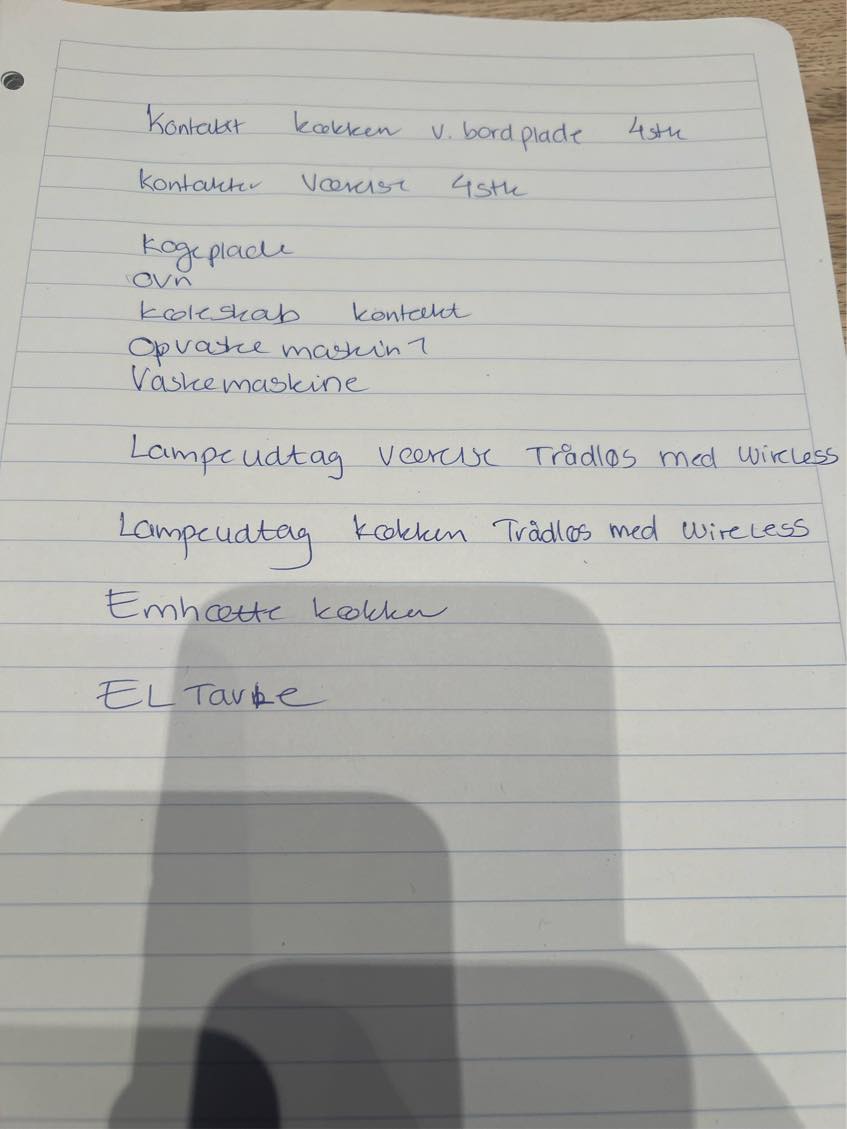 Kontakt køkken v. bordplade 4stk
Kontakter Værelse 4stk
Kogeplade
Ovn
Køleskab kontakt
Opvaske maskin
Vaskemaskine
Lampeudtag værelse Trådløs med wireless
Lampeudtag køkken Trådløs med wireless
Emhætte køkken
EL Tavle